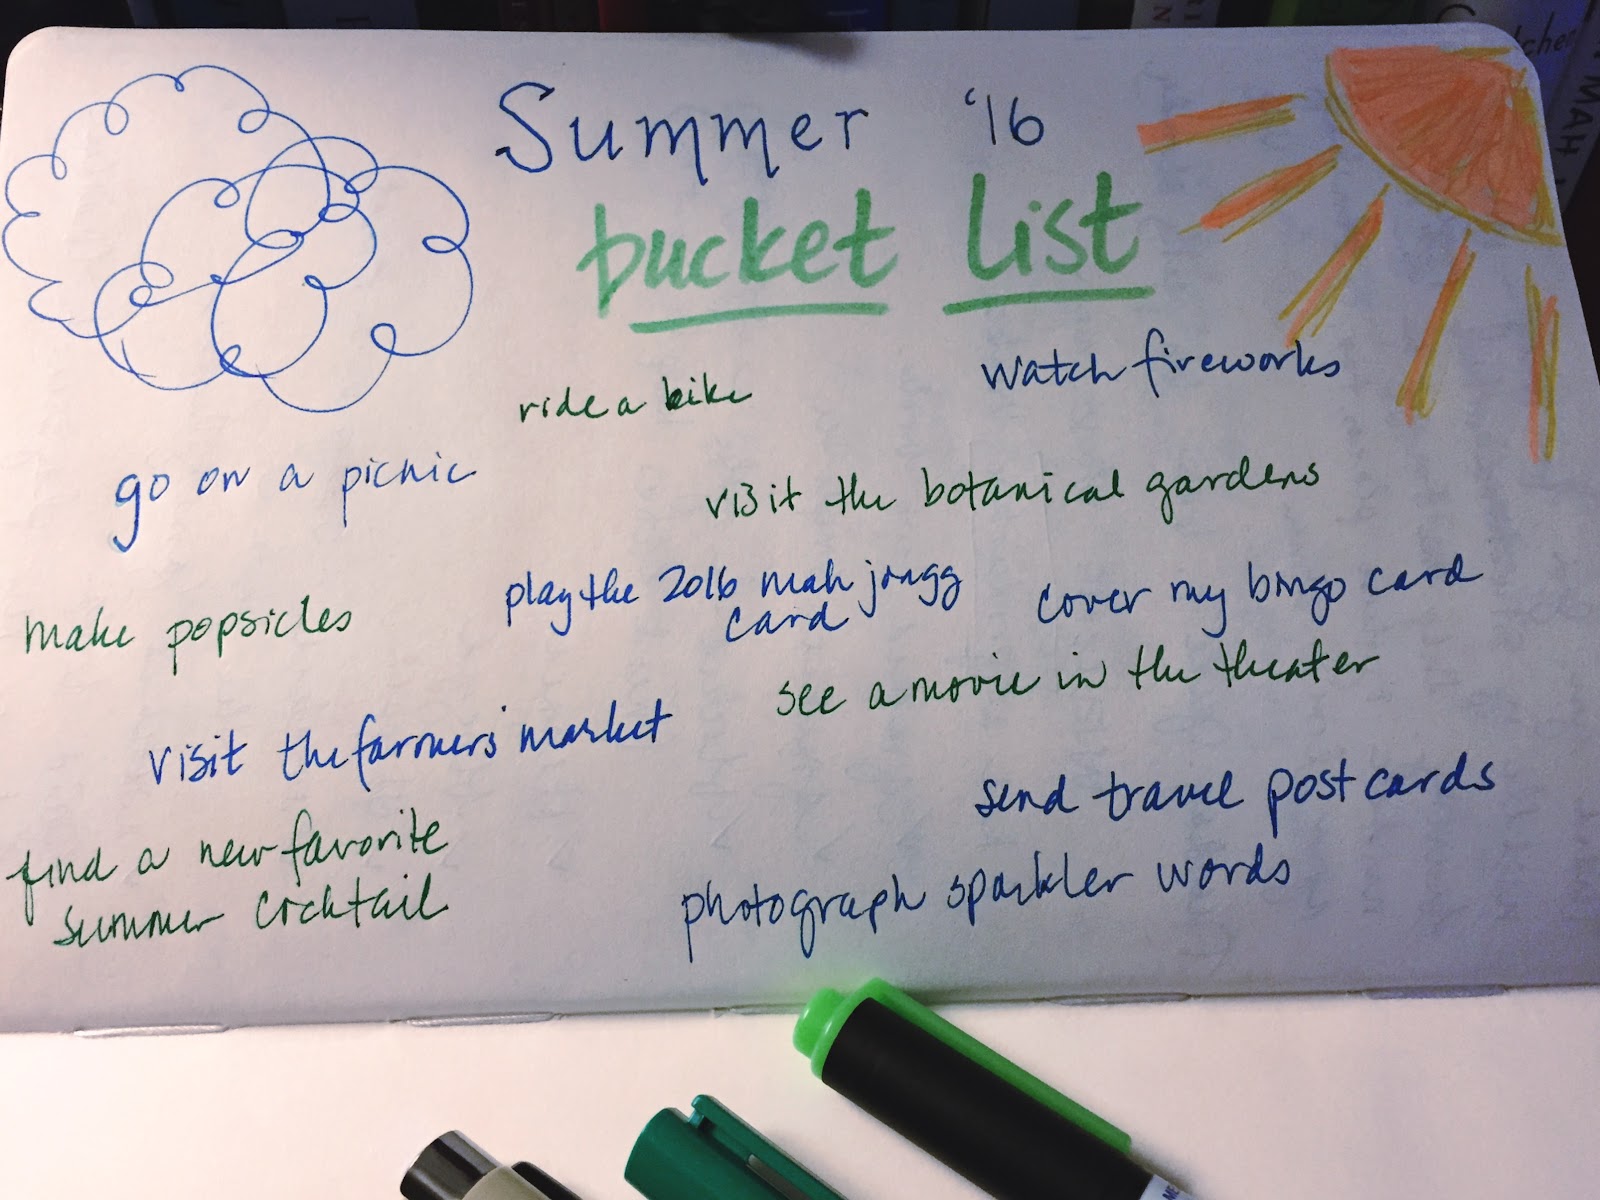 Summer '16
bucket list
ride a bike
watch fireworks
go on a picnic
visit the botanical gardens
make popsicles
play the 2016 mah jongg
card
cover my bingo card
see a movie in the theater
visit the farmers' market
send travel postcards
find a new favorite
summer cocktail
photograph sparkler words
MAH
ME